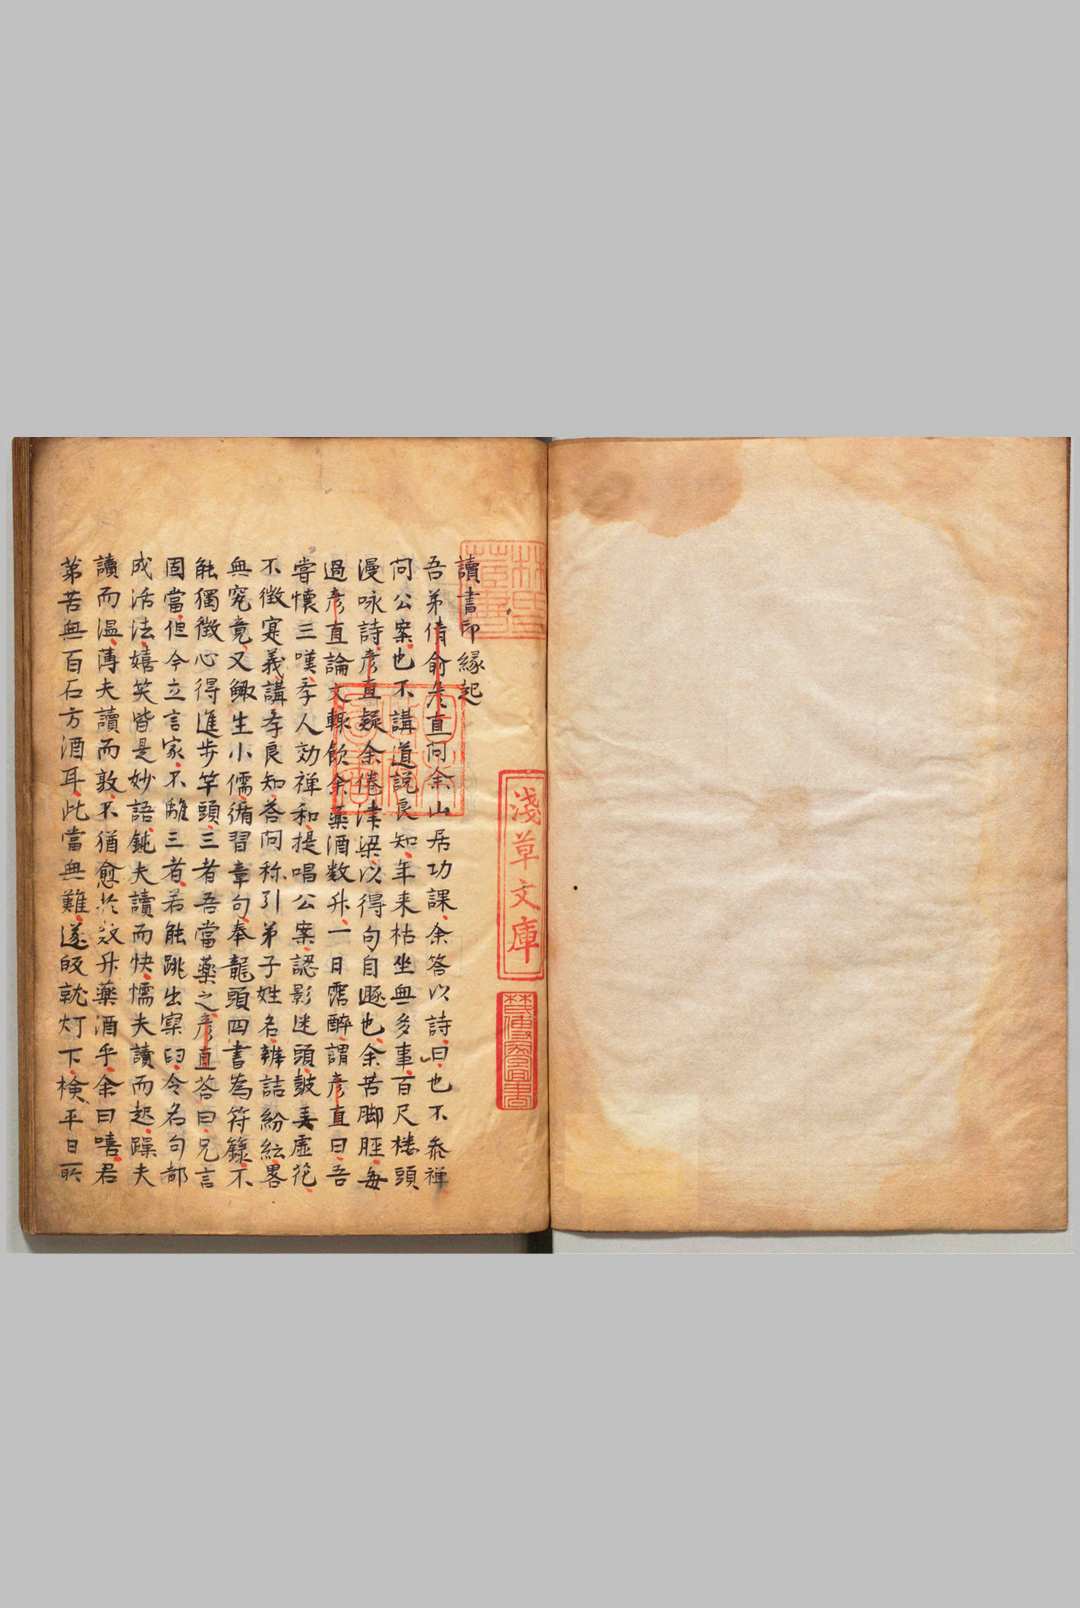 讀書印縁起
吾弟倩俞彦直問余山居功課余答以詩曰也不参禅
問公案也不講道説良知年来枯坐無多事百尺楼頭
漫咏詩彦直疑余倦津梁以得句自豚也余苦脚脛毎
過彦直論文輙飲余薬酒数升一日霑醉謂彦直曰吾
甞懐三嘆季人効禅和提唱公案認影迷頭皷弄虚花
不徴寔義講孝良知荅問称引弟子姓名辨詰紛紜畧
無究竟又鯫生小儒循習章句奉龍頭四書為符籙不
能獨徴心得進歩竿頭三者吾當薬之彦直答曰兄言
固當但今立言家不離三者若能跳出窠臼令名句部
成活法嬉笑皆是妙語鈍夫讀而快懦夫讀而起躁夫
讀而温薄夫讀而敦不猶愈於数升薬酒乎余曰嘻君
第苦無百石方酒耳此當無難遂皈就灯下検平日所
淺草文庫
林氏藏書